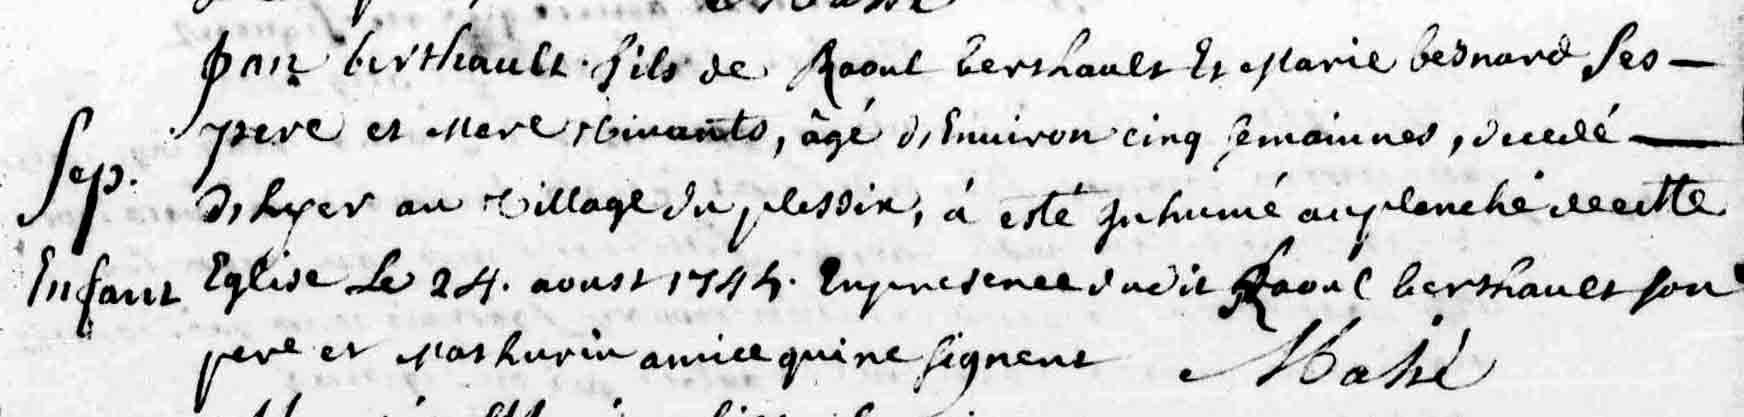 Jan berthault fils de Raoul berthault Et Marie besnard Ses
pere et Mere Vivants, âgé d'Environ cinq semainnes, decedé
Sep.
d'hyer au Village du plessix, á esté Inhumé au planché decette
Enfant
Eglise Le 24. aoust 1744. En presence dudit Raoul berthault son
pere et Mathurin amice qui ne signent Mahé